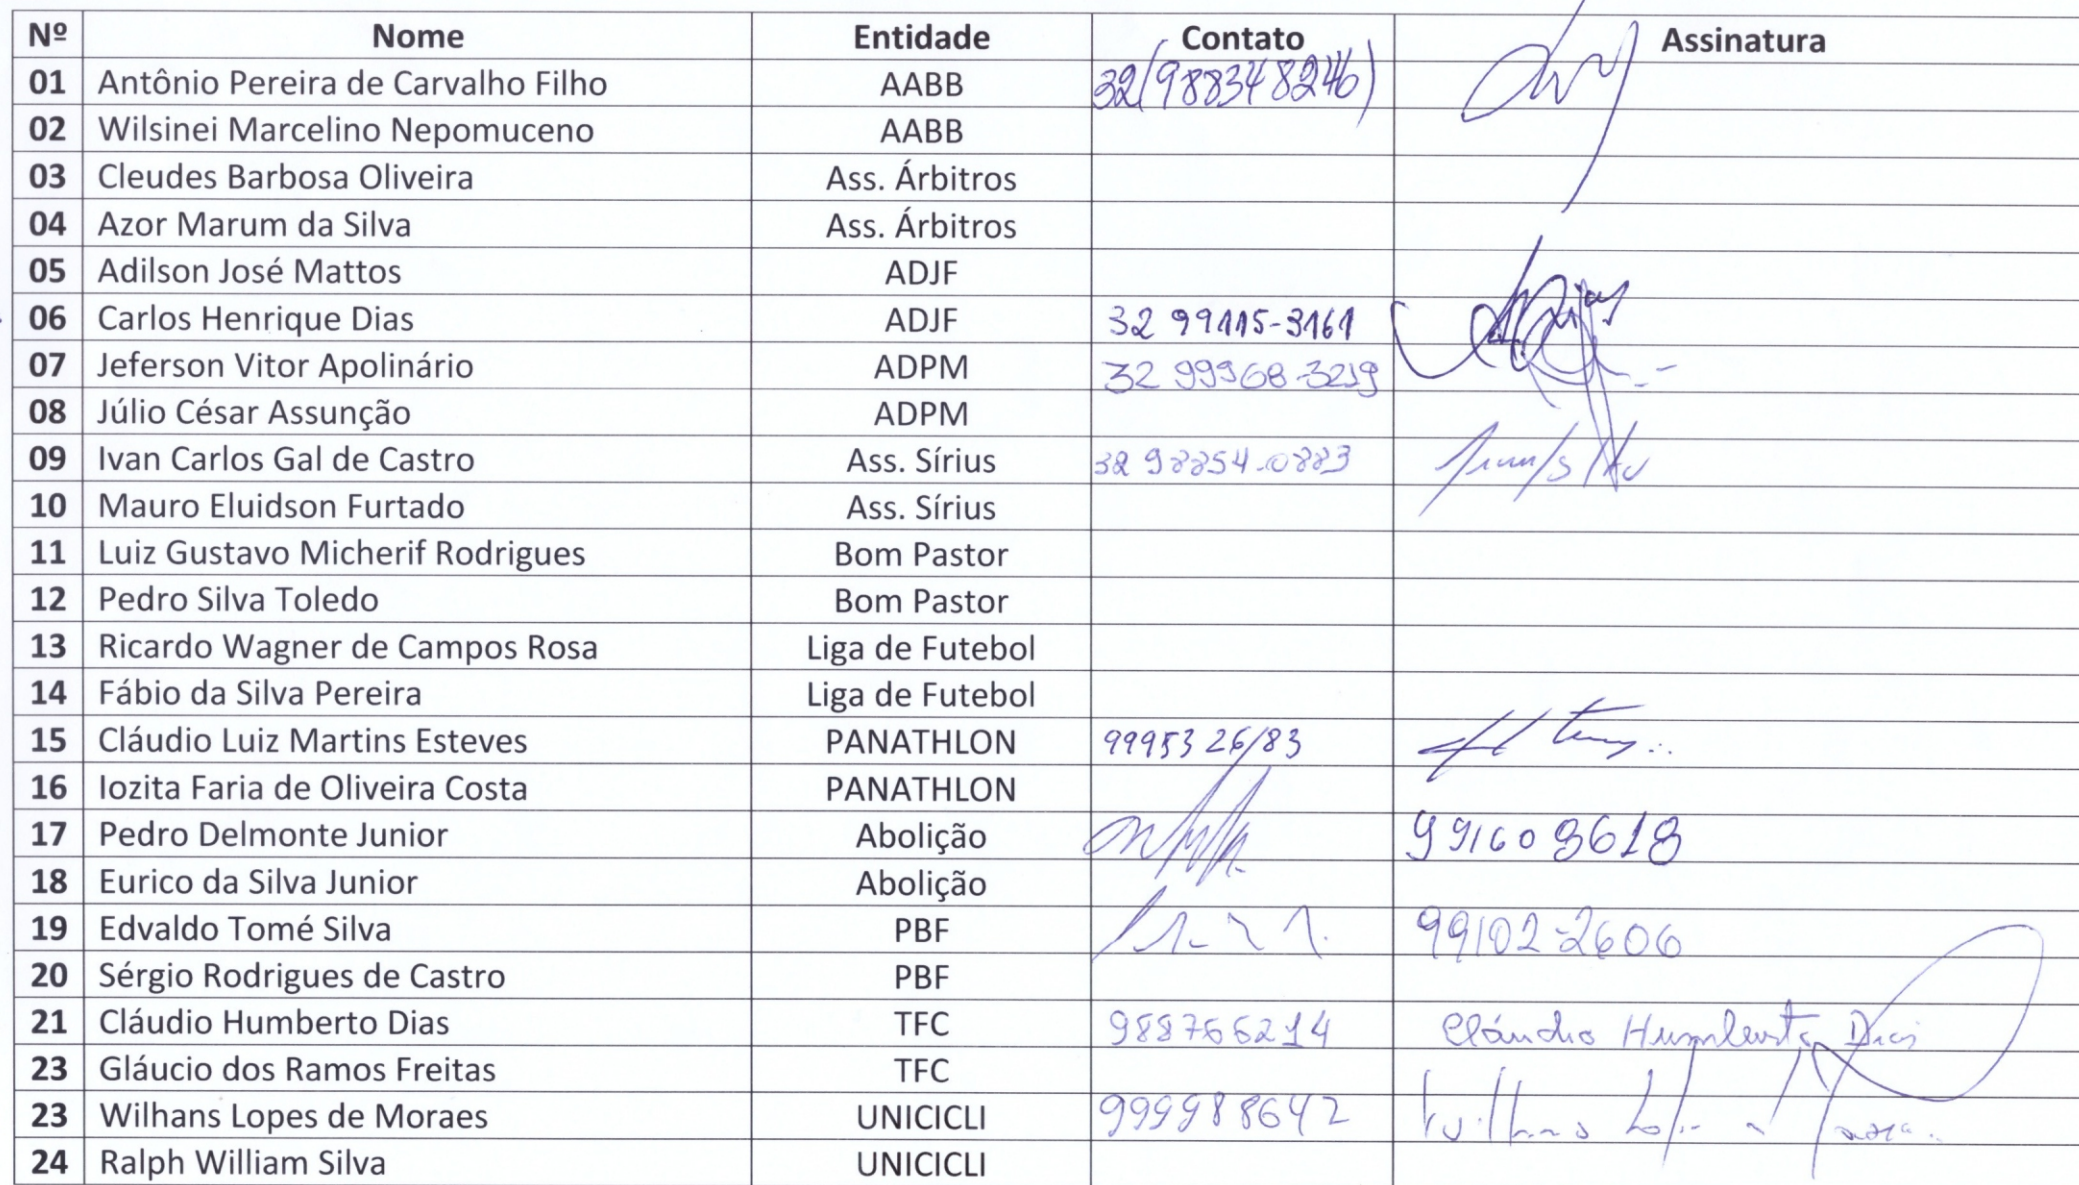 Nº Nome Entidade Contato Assinatura
01 Antônio Pereira de Carvalho Filho AABB 32(988348246)
02 Wilsinei Marcelino Nepomuceno AABB
03 Cleudes Barbosa Oliveira Ass. Árbitros
04 Azor Marum da Silva Ass. Árbitros
05 Adilson José Mattos ADJF
06 Carlos Henrique Dias ADJF 32 99115-3161
07 Jeferson Vitor Apolinário ADPM 32 99968-3219
08 Júlio César Assunção ADPM
09 Ivan Carlos Gal de Castro Ass. Sírius 32 98854-0883
10 Mauro Eluidson Furtado Ass. Sírius
11 Luiz Gustavo Micherif Rodrigues Bom Pastor
12 Pedro Silva Toledo Bom Pastor
13 Ricardo Wagner de Campos Rosa Liga de Futebol
14 Fábio da Silva Pereira Liga de Futebol
15 Cláudio Luiz Martins Esteves PANATHLON 99953 26/83
16 Iozita Faria de Oliveira Costa PANATHLON
17 Pedro Delmonte Junior Abolição 991603613
18 Eurico da Silva Junior Abolição
19 Edvaldo Tomé Silva PBF 99102-2606
20 Sérgio Rodrigues de Castro PBF
21 Cláudio Humberto Dias TFC 988766214 Cláudio Humberto Dias
23 Gláucio dos Ramos Freitas TFC
23 Wilhans Lopes de Moraes UNICICLI 999988642 Wilhans Lopes
24 Ralph William Silva UNICICLI